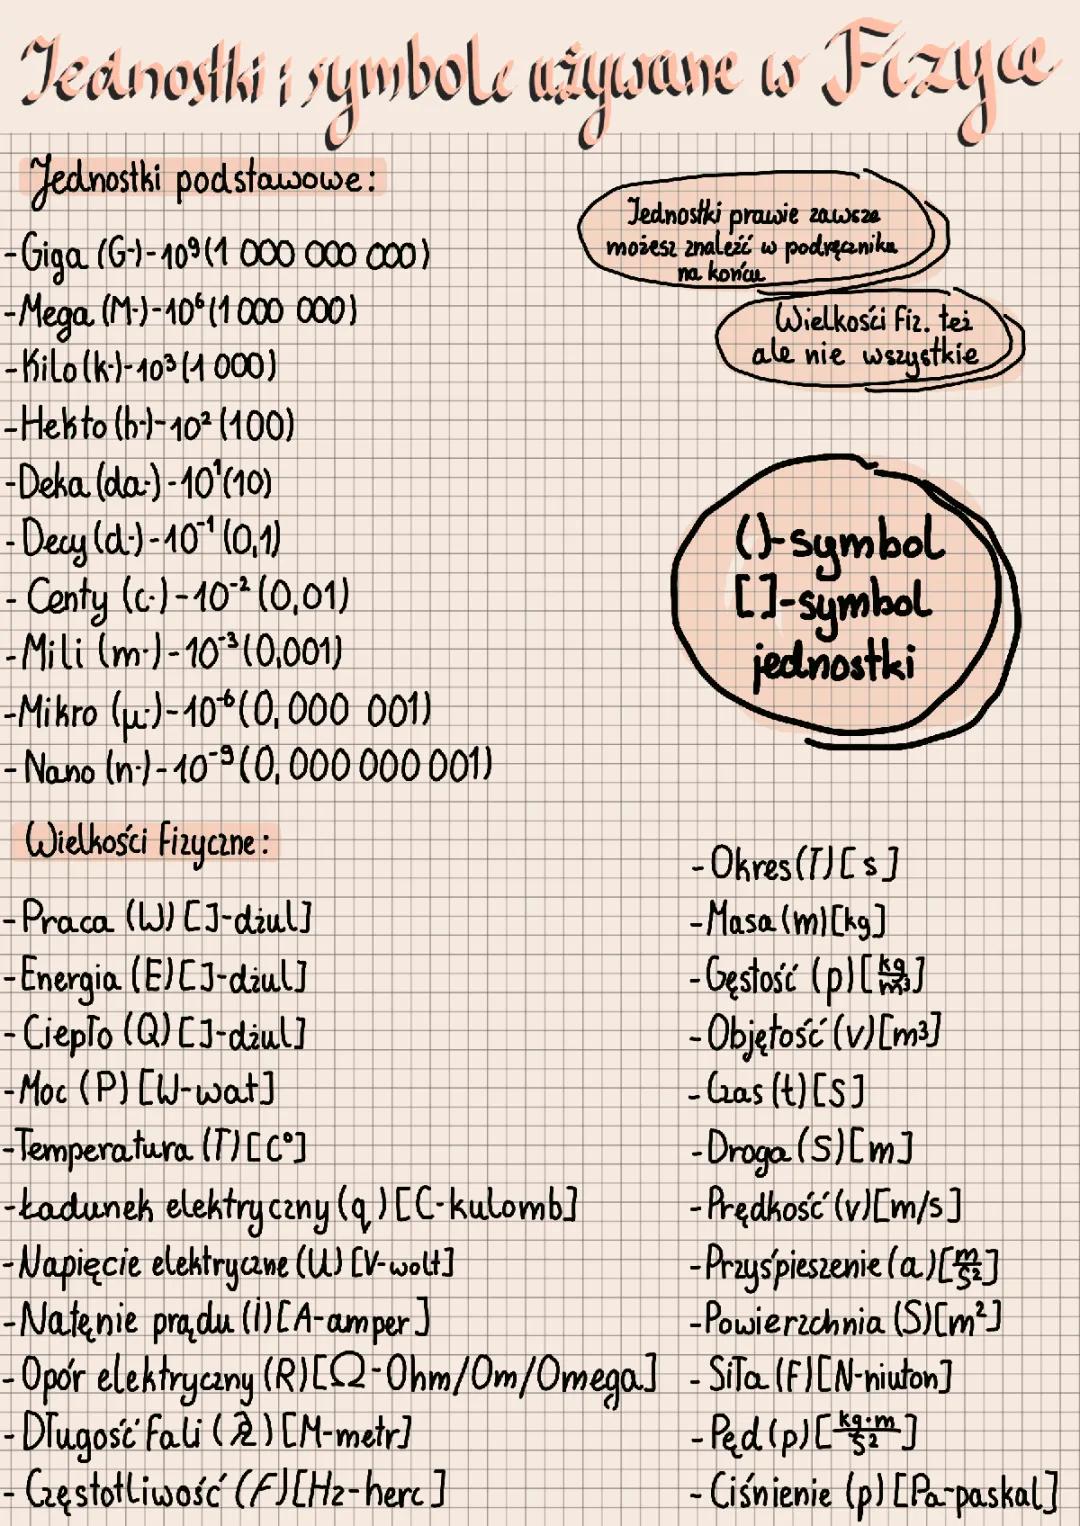 Jednostki i symbole używane w Fizyce
Jednostki podstawowe:
-Giga (G-)-10⁹(1 000 000 000)
-Mega (M-)-10⁶(1 000 000)
-Kilo (k-)-10³(1 000)
-Hekto (h-)-10²(100)
-Deka (da-)-10¹(10)
-Decy (d-)-10⁻¹(0,1)
-Centy (c-)-10⁻²(0,01)
-Mili (m-)-10⁻³(0,001)
-Mikro (μ-)-10⁻⁶(0,000 001)
-Nano (n-)-10⁻⁹(0,000 000 001)
Jednostki prawie zawsze
możesz znaleźć w podręczniku
na końcu
Wielkości fiz. też
ale nie wszystkie
()-symbol
[]-symbol
jednostki
Wielkości fizyczne:
-Praca (W) [J-dżul]
-Energia (E) [J-dżul]
-Ciepło (Q) [J-dżul]
-Moc (P) [W-wat]
-Temperatura (T) [C°]
-Ładunek elektryczny (q) [C-kulomb]
-Napięcie elektryczne (U) [V-wolt]
-Natęnie prądu (i) [A-amper]
-Opór elektryczny (R) [Ω-Ohm/Om/Omega]
-Długość Fali (λ) [M-metr]
-Częstotliwość (F) [Hz-herc]
-Okres (T) [s]
-Masa (m) [kg]
-Gęstość (p) [kg/m³]
-Objętość (v) [m³]
-Czas (t) [S]
-Droga (S) [m]
-Prędkość (v) [m/s]
-Przyśpieszenie (a) [m/S²]
-Powierzchnia (S) [m²]
-Siła (F) [N-niuton]
-Pęd (p) [kg·m/S²]
-Ciśnienie (p) [Pa-paskal]